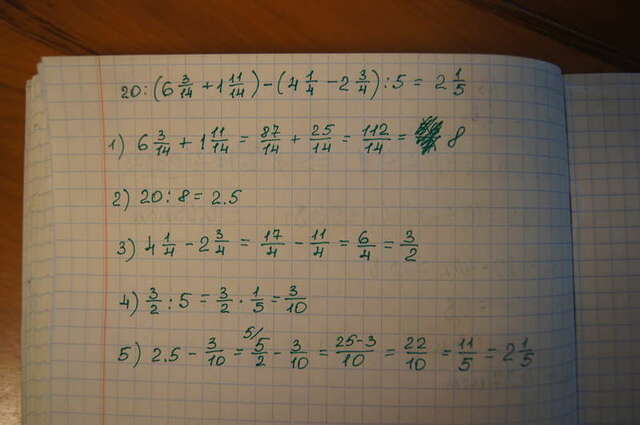 20:(6 3/14 + 1 11/14) - (4 1/4 - 2 3/4):5 = 2 1/5
1) 6 3/14 + 1 11/14 = 87/14 + 25/14 = 112/14 = 8
2) 20:8 = 2.5
3) 4 1/4 - 2 3/4 = 17/4 - 11/4 = 6/4 = 3/2
4) 3/2 : 5 = 3/2 · 1/5 = 3/10
5) 2.5 - 3/10 = 5/ 5/2 - 3/10 = 25-3/10 = 22/10 = 11/5 = 2 1/5